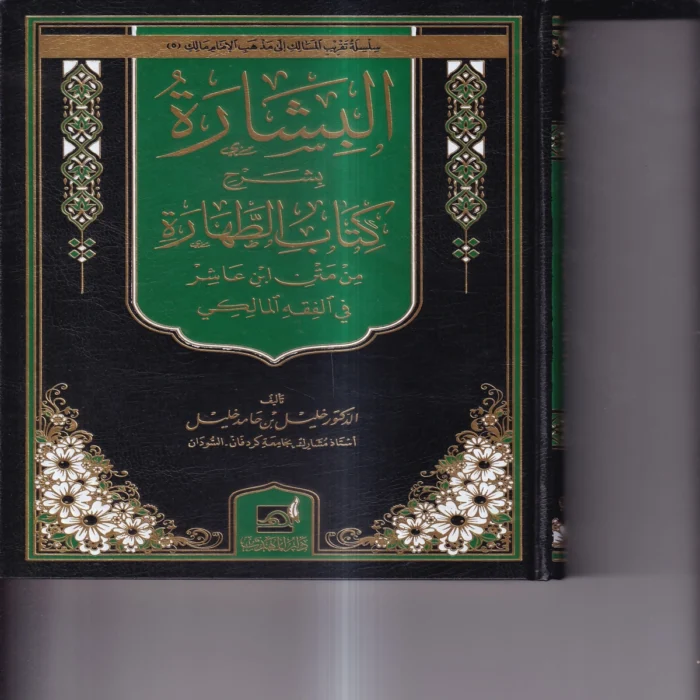 سلسلة تقريب المسالك إلى مذهب الإمام مالك (٥)
البشارة
بشرح
كتاب الطهارة
من متن ابن عاشر
في الفقه المالكي
تأليف
الدكتور خليل بن حامد خليل
أستاذ مشارك بجامعة كردفان - السودان